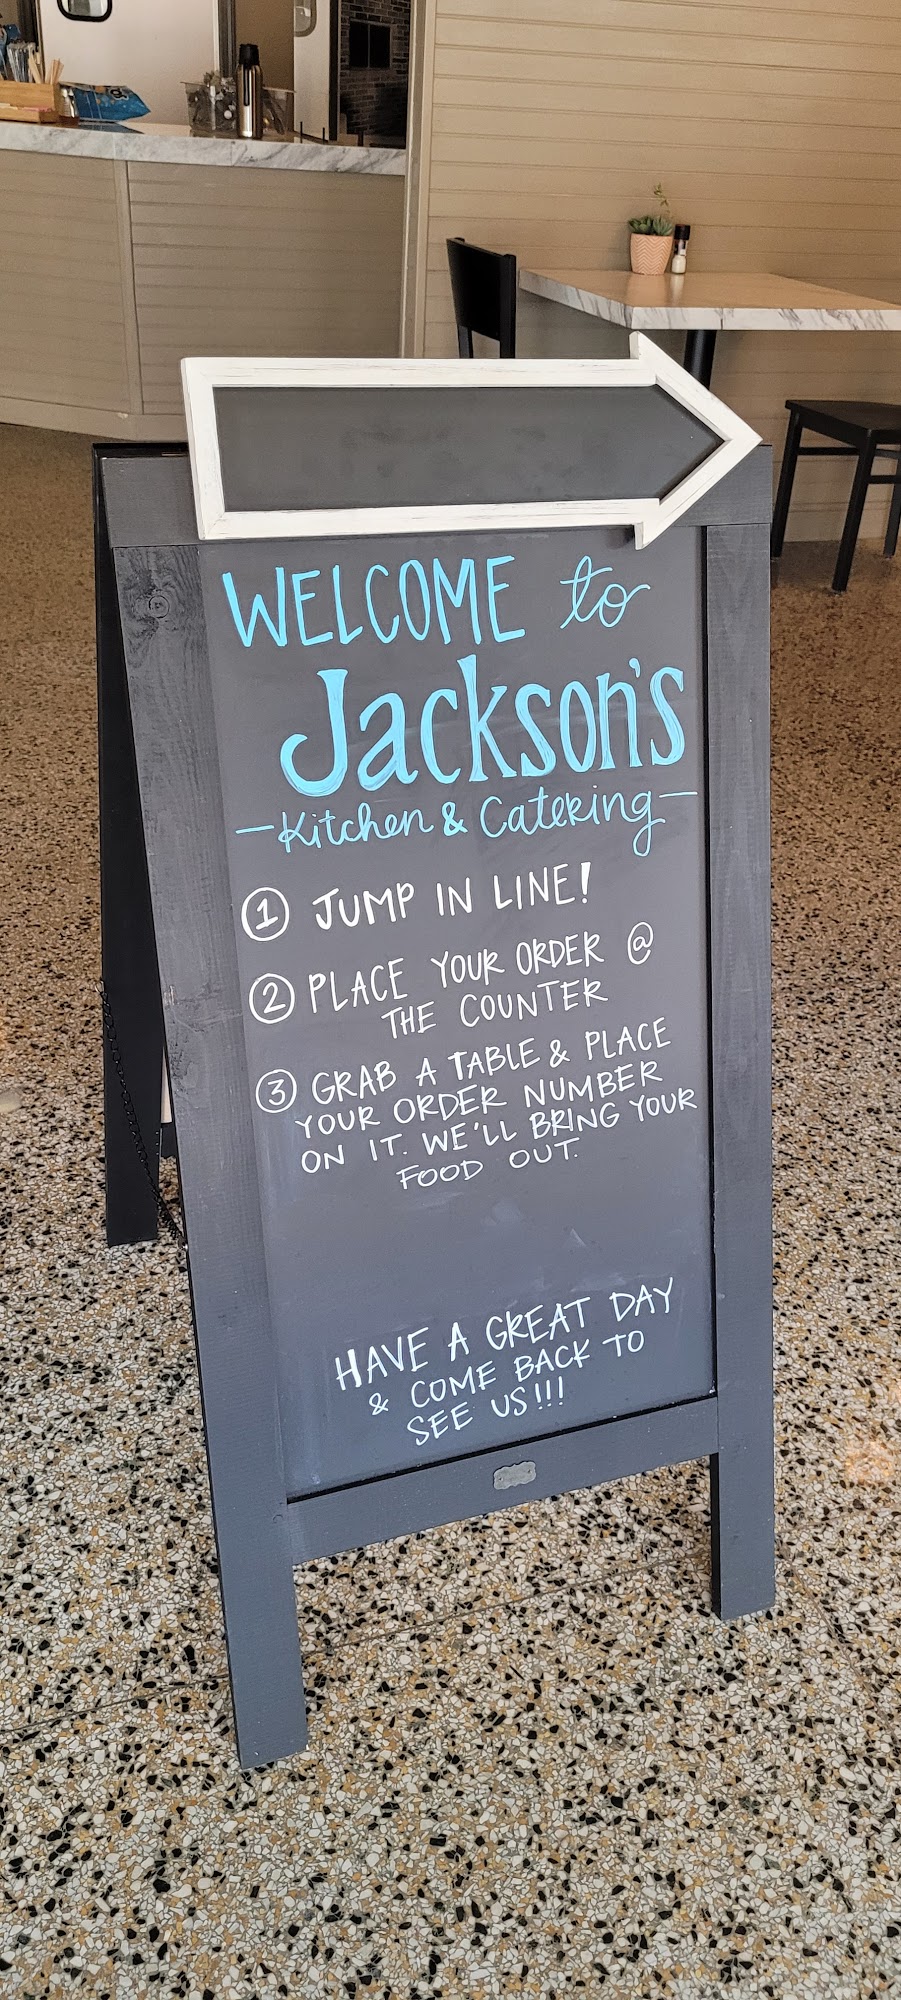 WELCOME to
Jackson's
-Kitchen & Catering-
1 JUMP IN LINE!
2 PLACE YOUR ORDER @
THE COUNTER
3 GRAB A TABLE & PLACE
YOUR ORDER NUMBER
ON IT. WE'LL BRING YOUR
FOOD OUT.
HAVE A GREAT DAY
& COME BACK TO
SEE US!!!